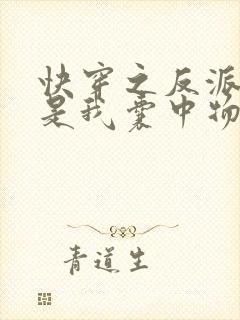 快穿之反派
是我囊中物
青道生